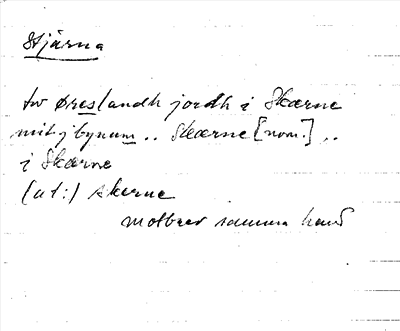 Stjärna
tw øreslandh jordh i Skærne
mit j bynum .. Skærne [nom.] ..
i Skærne
(a t:) skerne
motbrev samma hand